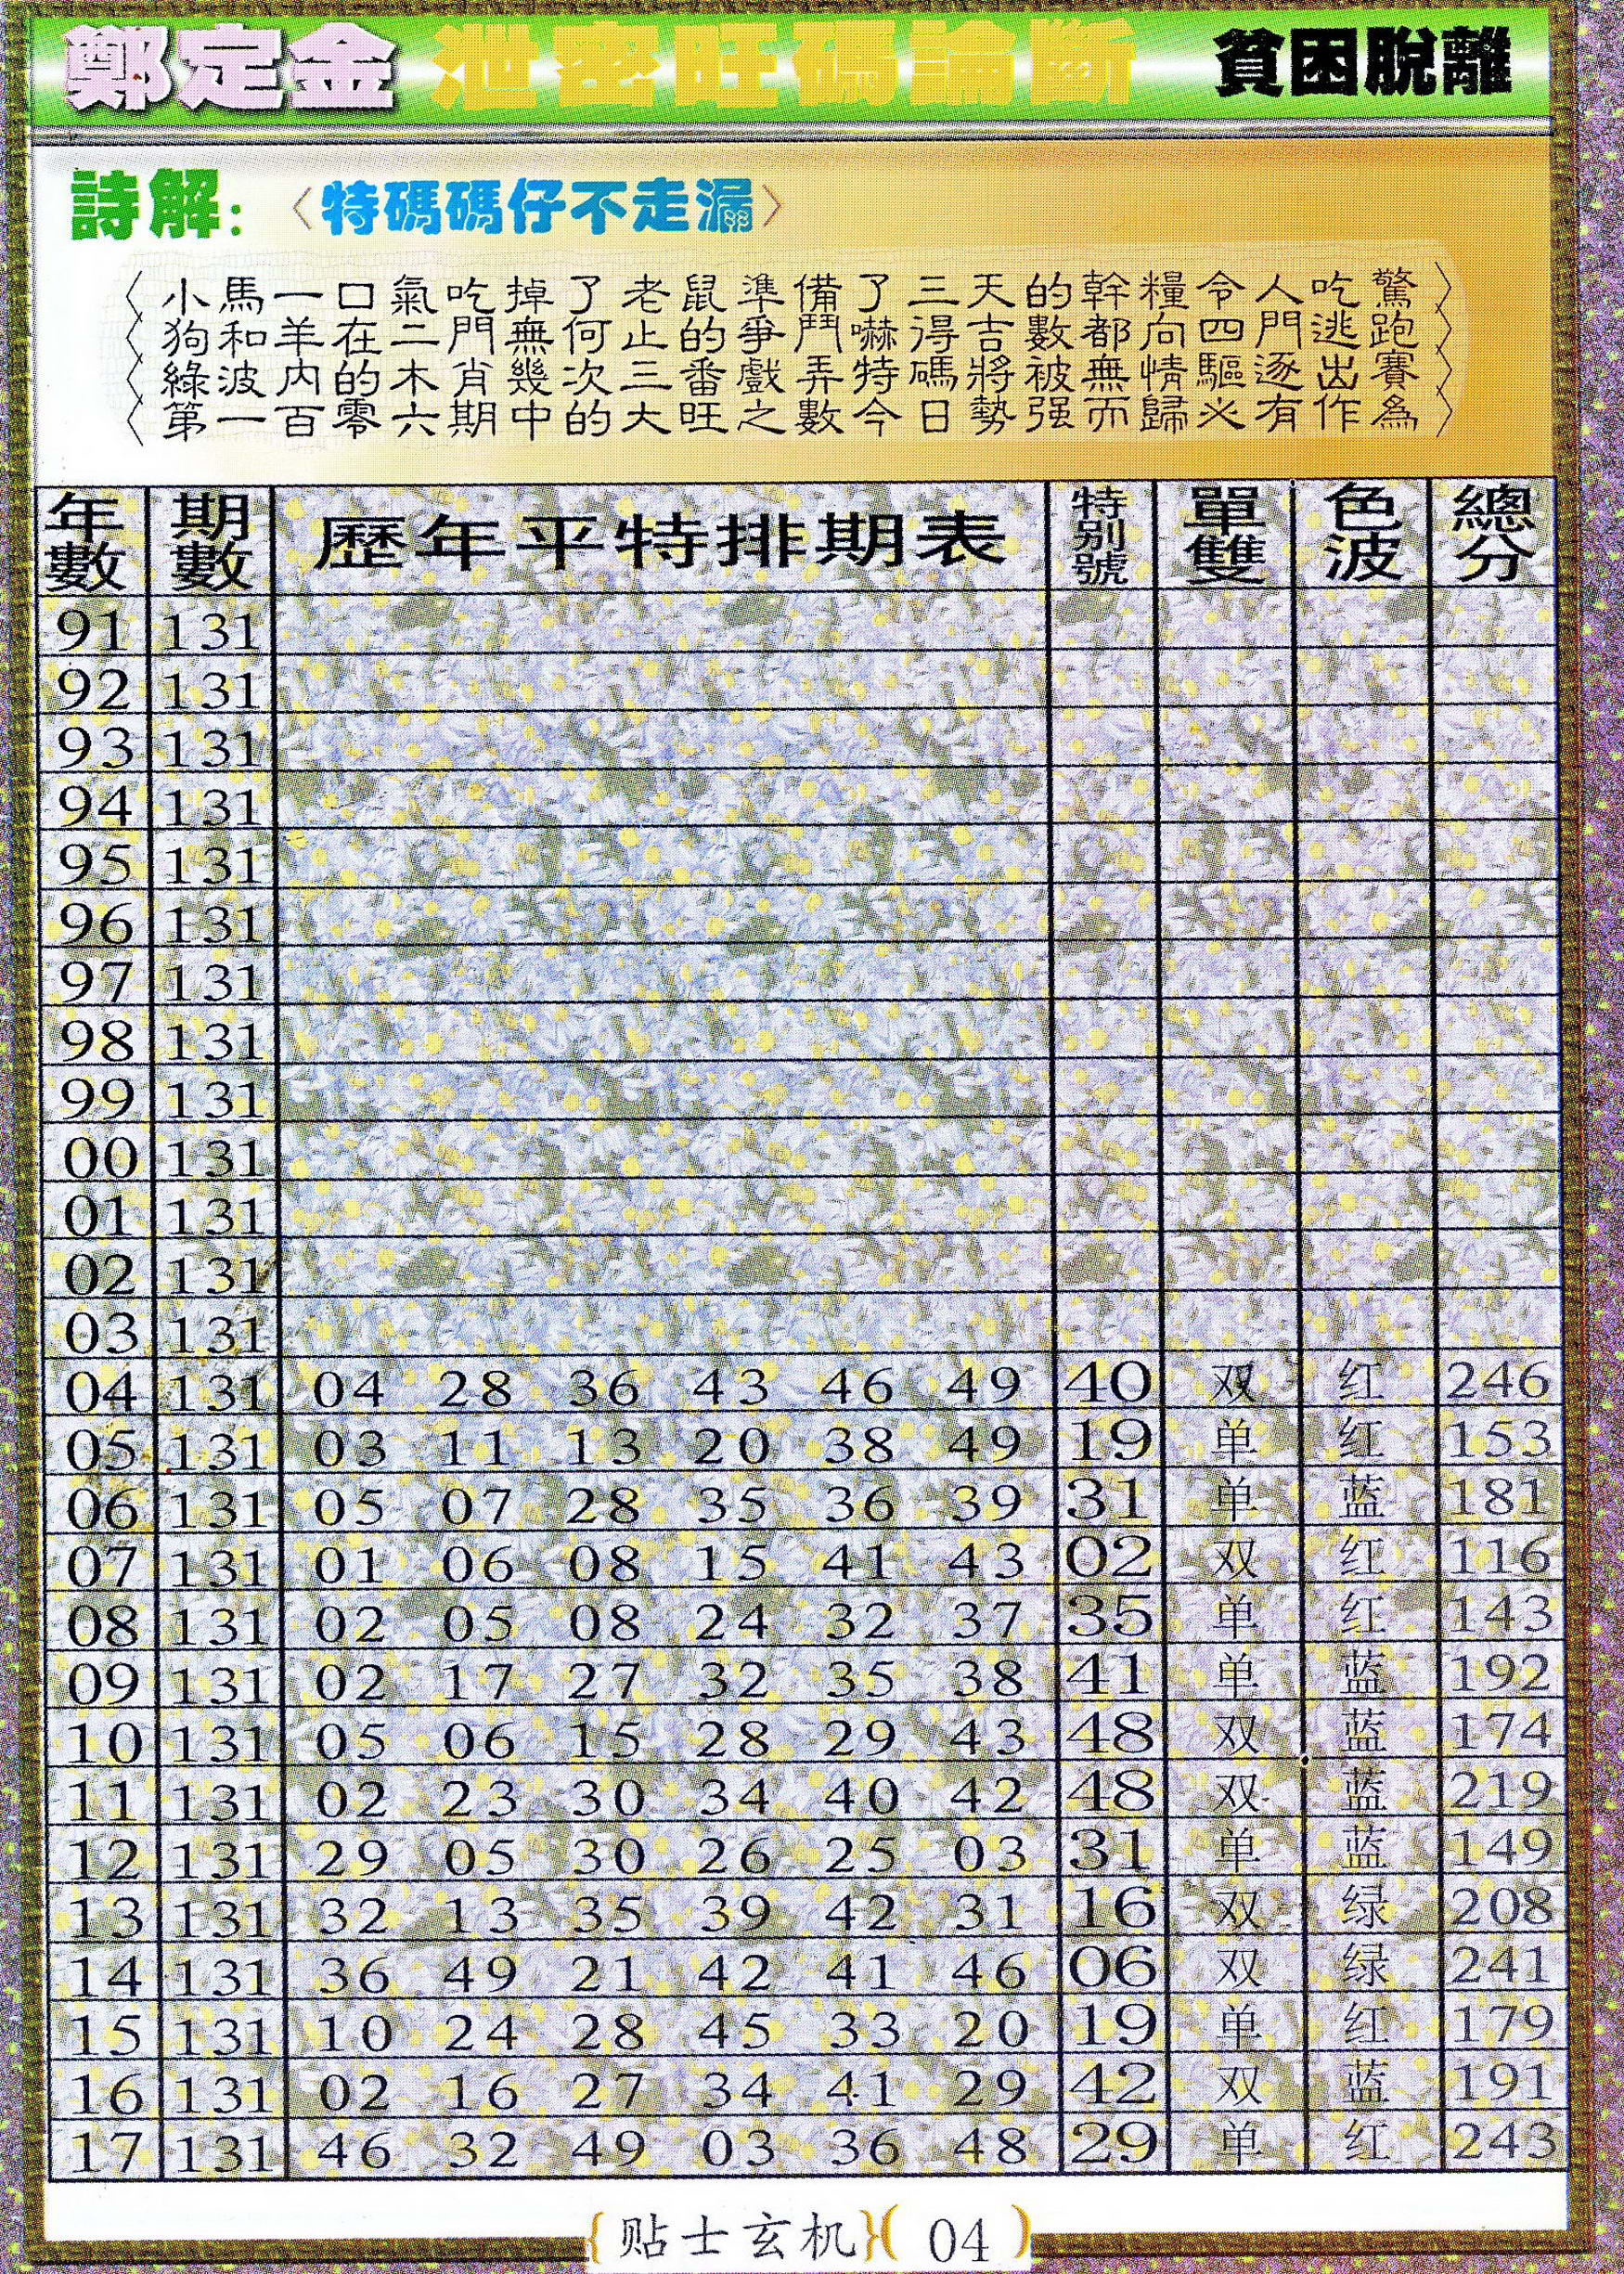 鄭定金 泄密旺碼論斷 貧困脫離
詩解：〈特碼碼仔不走漏〉
〈小馬一口氣吃掉了老鼠準備了三天的幹糧令人吃驚〉
〈狗和羊在二門無何止的爭鬥嚇得吉數都向四門逃跑〉
〈綠波内的木肖幾次三番戲弄特碼將被無情驅逐出賽〉
〈第一百零六期中的大旺之數今日勢强而歸必有作為〉
年數 期數 歷年平特排期表 特别號 單雙 色波 總分
91 131
92 131
93 131
94 131
95 131
96 131
97 131
98 131
99 131
00 131
01 131
02 131
03 131
04 131 04 28 36 43 46 49 40 双 红 246
05 131 03 11 13 20 38 49 19 单 红 153
06 131 05 07 28 35 36 39 31 单 蓝 181
07 131 01 06 08 15 41 43 02 双 红 116
08 131 02 05 08 24 32 37 35 单 红 143
09 131 02 17 27 32 35 38 41 单 蓝 192
10 131 05 06 15 28 29 43 48 双 蓝 174
11 131 02 23 30 34 40 42 48 双 蓝 219
12 131 29 05 30 26 25 03 31 单 蓝 149
13 131 32 13 35 39 42 31 16 双 绿 208
14 131 36 49 21 42 41 46 06 双 绿 241
15 131 10 24 28 45 33 20 19 单 红 179
16 131 02 16 27 34 41 29 42 双 蓝 191
17 131 46 32 49 03 36 48 29 单 红 243
{贴士玄机}(04)